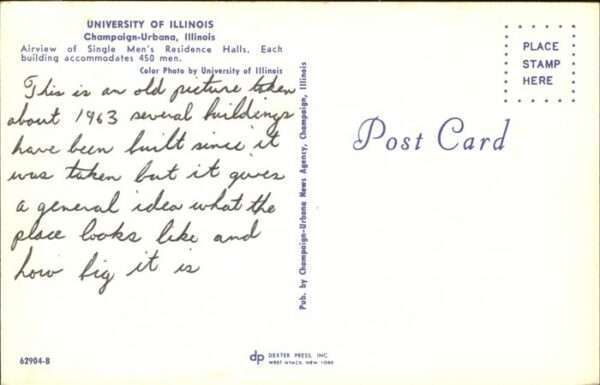 UNIVERSITY OF ILLINOIS
Champaign-Urbana, Illinois
Airview of Single Men's Residence Halls. Each
building accommodates 450 men.
Color Photo by University of Illinois
This is an old picture taken
about 1963 several buildings
have been built since it
was taken but it gives
a general idea what the
place looks like and
how big it is
62904-B
Pub. by Champaign-Urbana News Agency, Champaign, Illinois
Post Card
PLACE
STAMP
HERE
dp DEXTER PRESS, INC.
WEST NYACK, NEW YORK